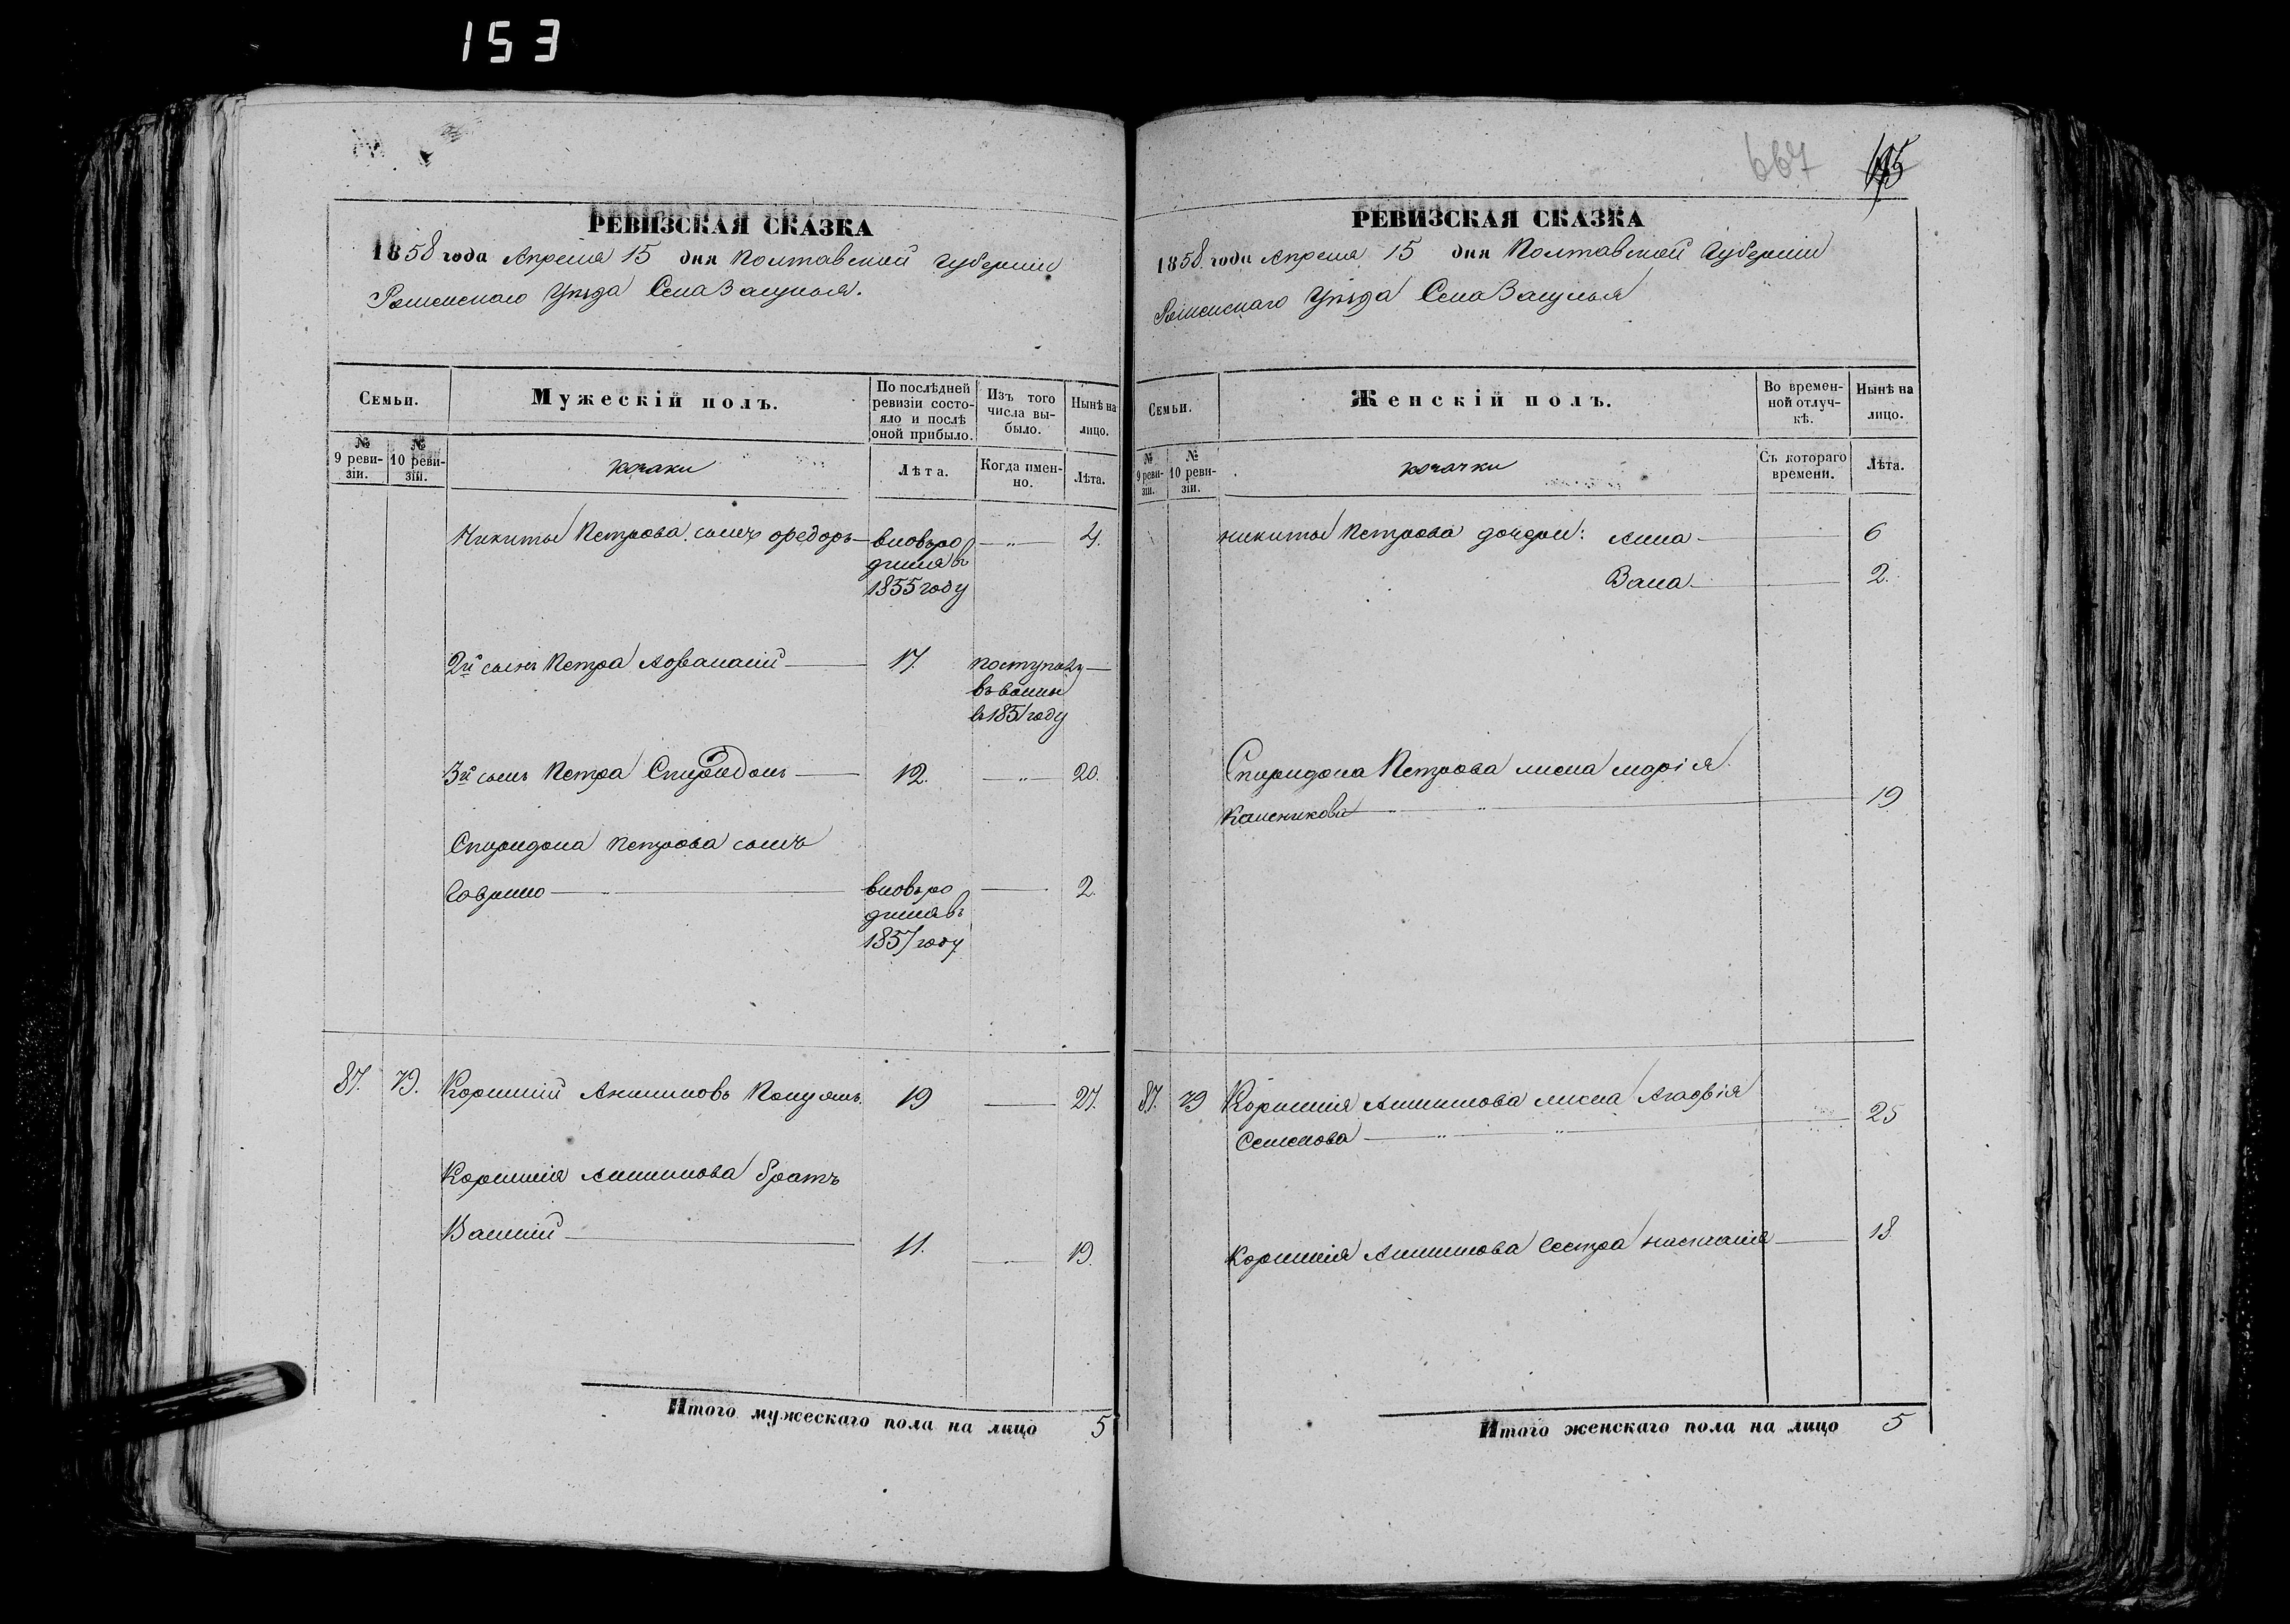 153
РЕВИЗСКАЯ СКАЗКА
1858 года Апреля 15 дня Полтавской Губернии
Роменскаго Уѣзда Села Засулья.
Семьи.
Мужескій полъ.
По послѣдней ревизіи состояло и послѣ оной прибыло.
Изъ того числа выбыло.
Нынѣ на лицо.
№ 9 ревизіи.
№ 10 ревизіи.
козаки
Лѣта.
Когда именно.
Лѣта.
Никиты Петрова сынъ Федоръ
вновь ро
дился въ
1855 году
4.
2й сынъ Петра Афанасій
17.
поступилъ
въ
въ 1851 году
3й сынъ Петра Спиридонъ
12.
20.
Спиридона Петрова сынъ
Гаврило
вновь ро
дился въ
1857 году
2.
87. 79. Корнилій Анисимовъ
19
27.
Корнилія Анисимова братъ
Василій
11.
19.
Итого мужескаго пола на лицо 5
667
РЕВИЗСКАЯ СКАЗКА
1858 года Апреля 15 дня Полтавской Губернии
Роменскаго Уѣзда Села Засулья
Семьи.
Женскій полъ.
Во временной отлучкѣ.
Нынѣ на лицо.
№ 9 ревизіи.
№ 10 ревизіи.
козачки
Съ котораго времени.
Лѣта.
Никиты Петрова дочери: Анна
6
2.
Спиридона Петрова жена Марія
19
87. 79 Корнилія Анисимова жена Агафія
Семенова
25
Корнилія Анисимова сестра Наталія
18
Итого женскаго пола на лицо 5